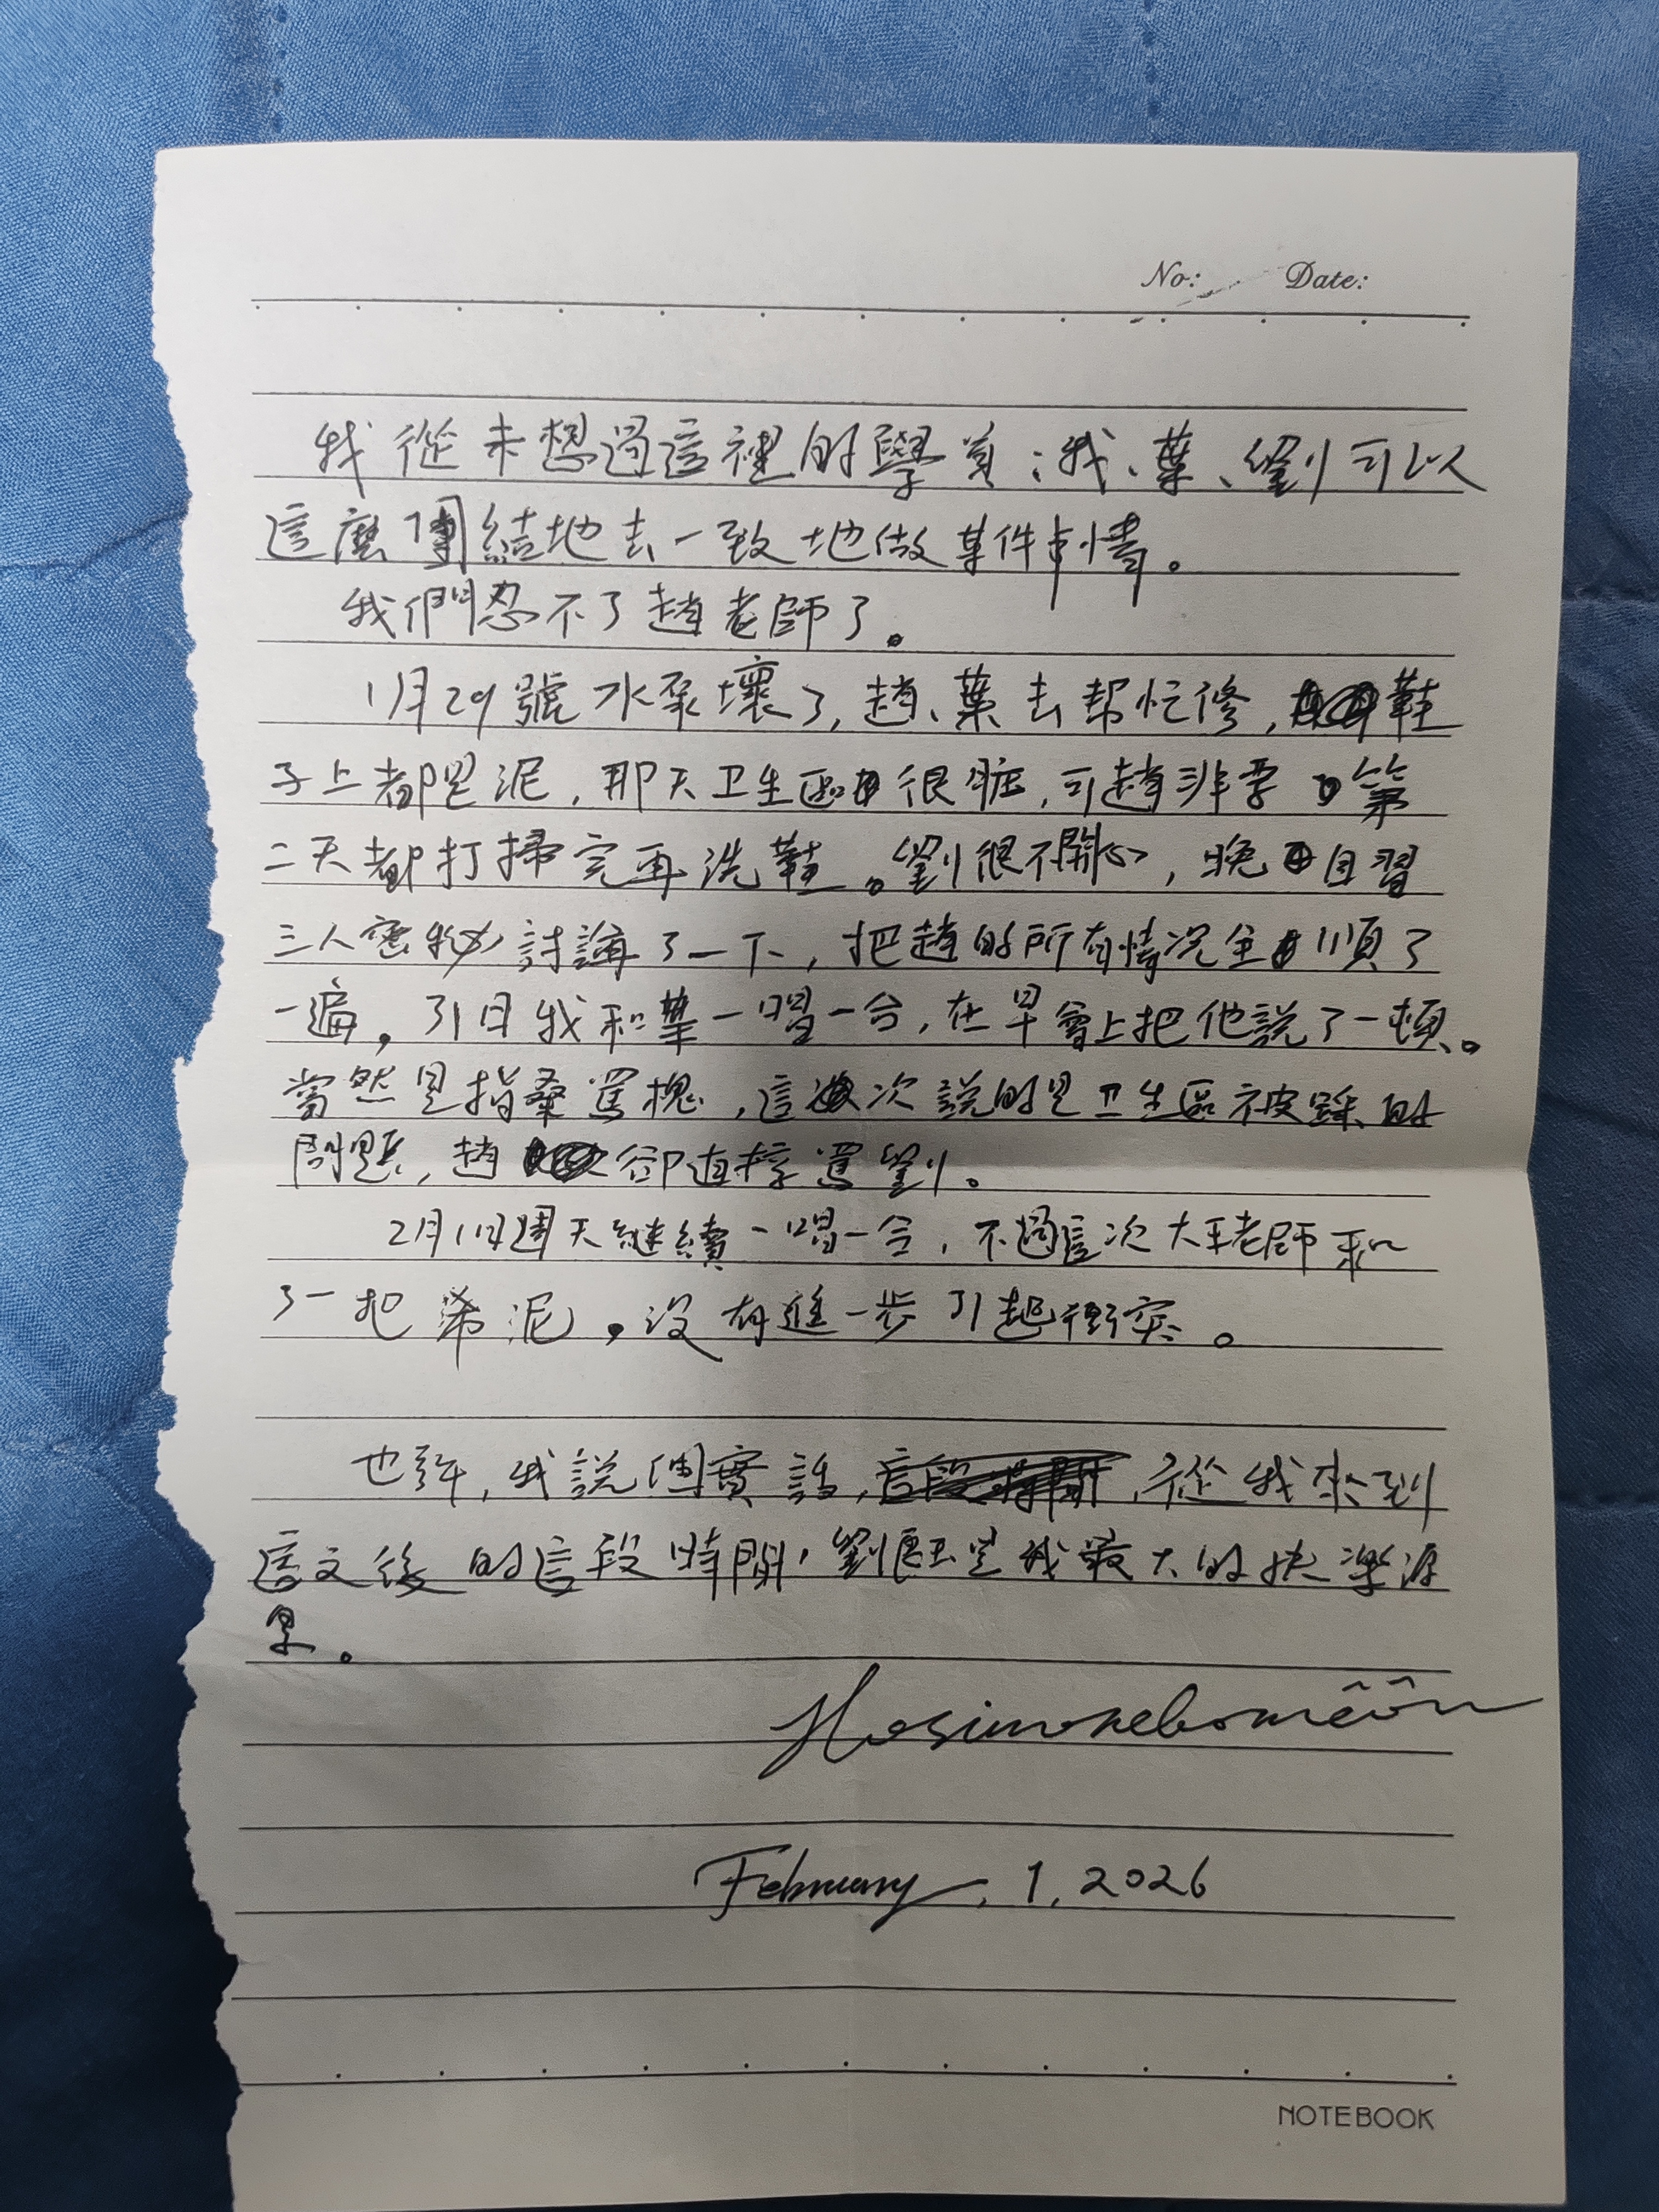 No: Date:
我從未想過這裡的學員：我、葉、劉可以
這麼團結地去一致地做某件事情。
我們忍不了趙老師了。
1月29號水泵壞了，趙、葉去幫忙修，鞋
子上都是泥，那天卫生區很脏，可趙非要第
二天都打掃完再洗鞋。劉很不開心，晚自習
三人密秘討論了一下，把趙的所有情况全順了
一遍。31日我和葉一唱一合，在早會上把他説了一頓。
當然是指桑罵槐，這次説的是卫生區被踩的
問題，趙卻直接罵劉。
2月1日週天繼續一唱一合，不過這次大王老師和
了一把稀泥，没有進一步引起衝突。
也許，我説個實話，從我來到
這文後的這段時間，劉是我最大的快樂源
泉。
February, 1, 2026
NOTEBOOK